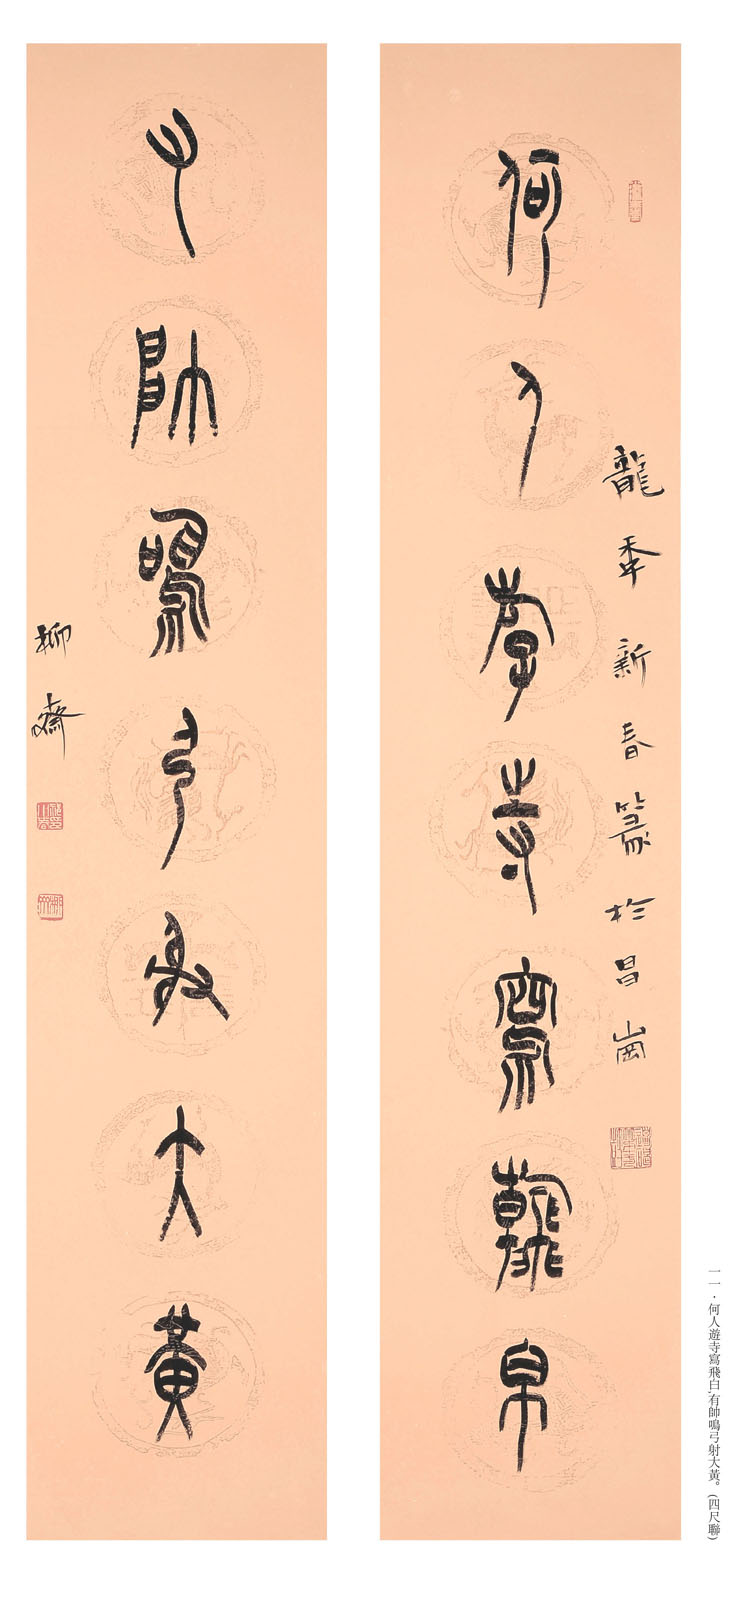 何人遊寺寫飛白
龍年新春篆於昌崗
有帥鳴弓射大黃
柳齋
一一·何人遊寺寫飛白,有帥鳴弓射大黃。(四尺聯)